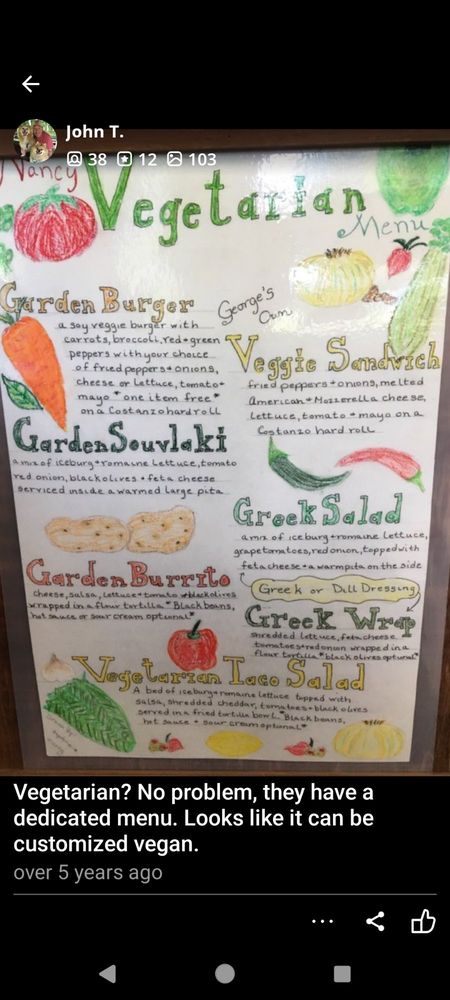 John T.
38 12 103
Nancy
Vegetarian
Menu
Garden Burger
a soy veggie burger with
carrots, broccoli, red + green
peppers with your choice
of fried peppers + onions,
cheese or lettuce, tomato +
mayo *one item free*
on a Costanzo hard roll
George's
Own
Veggie Sandwich
fried peppers + onions, melted
American + Mozzerella cheese,
lettuce, tomato + mayo on a
Costanzo hard roll
Garden Souvlaki
a mix of iceburg + romaine lettuce, tomato
red onion, black olives + feta cheese
serviced inside a warmed large pita
Greek Salad
a mix of iceburg + romaine lettuce,
grape tomatoes, red onion, topped with
feta cheese + a warm pita on the side
Greek or Dill Dressing
Garden Burrito
cheese, salsa, lettuce + tomato + black olives
wrapped in a flour tortilla *Black beans,
hot sauce or sour cream optional*
Greek Wrap
shredded lettuce, feta cheese
tomatoes + red onion wrapped in a
flour tortilla *black olives optional*
Vegetarian Taco Salad
A bed of iceburg + romaine lettuce topped with
salsa, shredded cheddar, tomatoes + black olives
served in a fried tortilla bowl. *Black beans,
hot sauce + sour cream optional*
Vegetarian? No problem, they have a
dedicated menu. Looks like it can be
customized vegan.
over 5 years ago